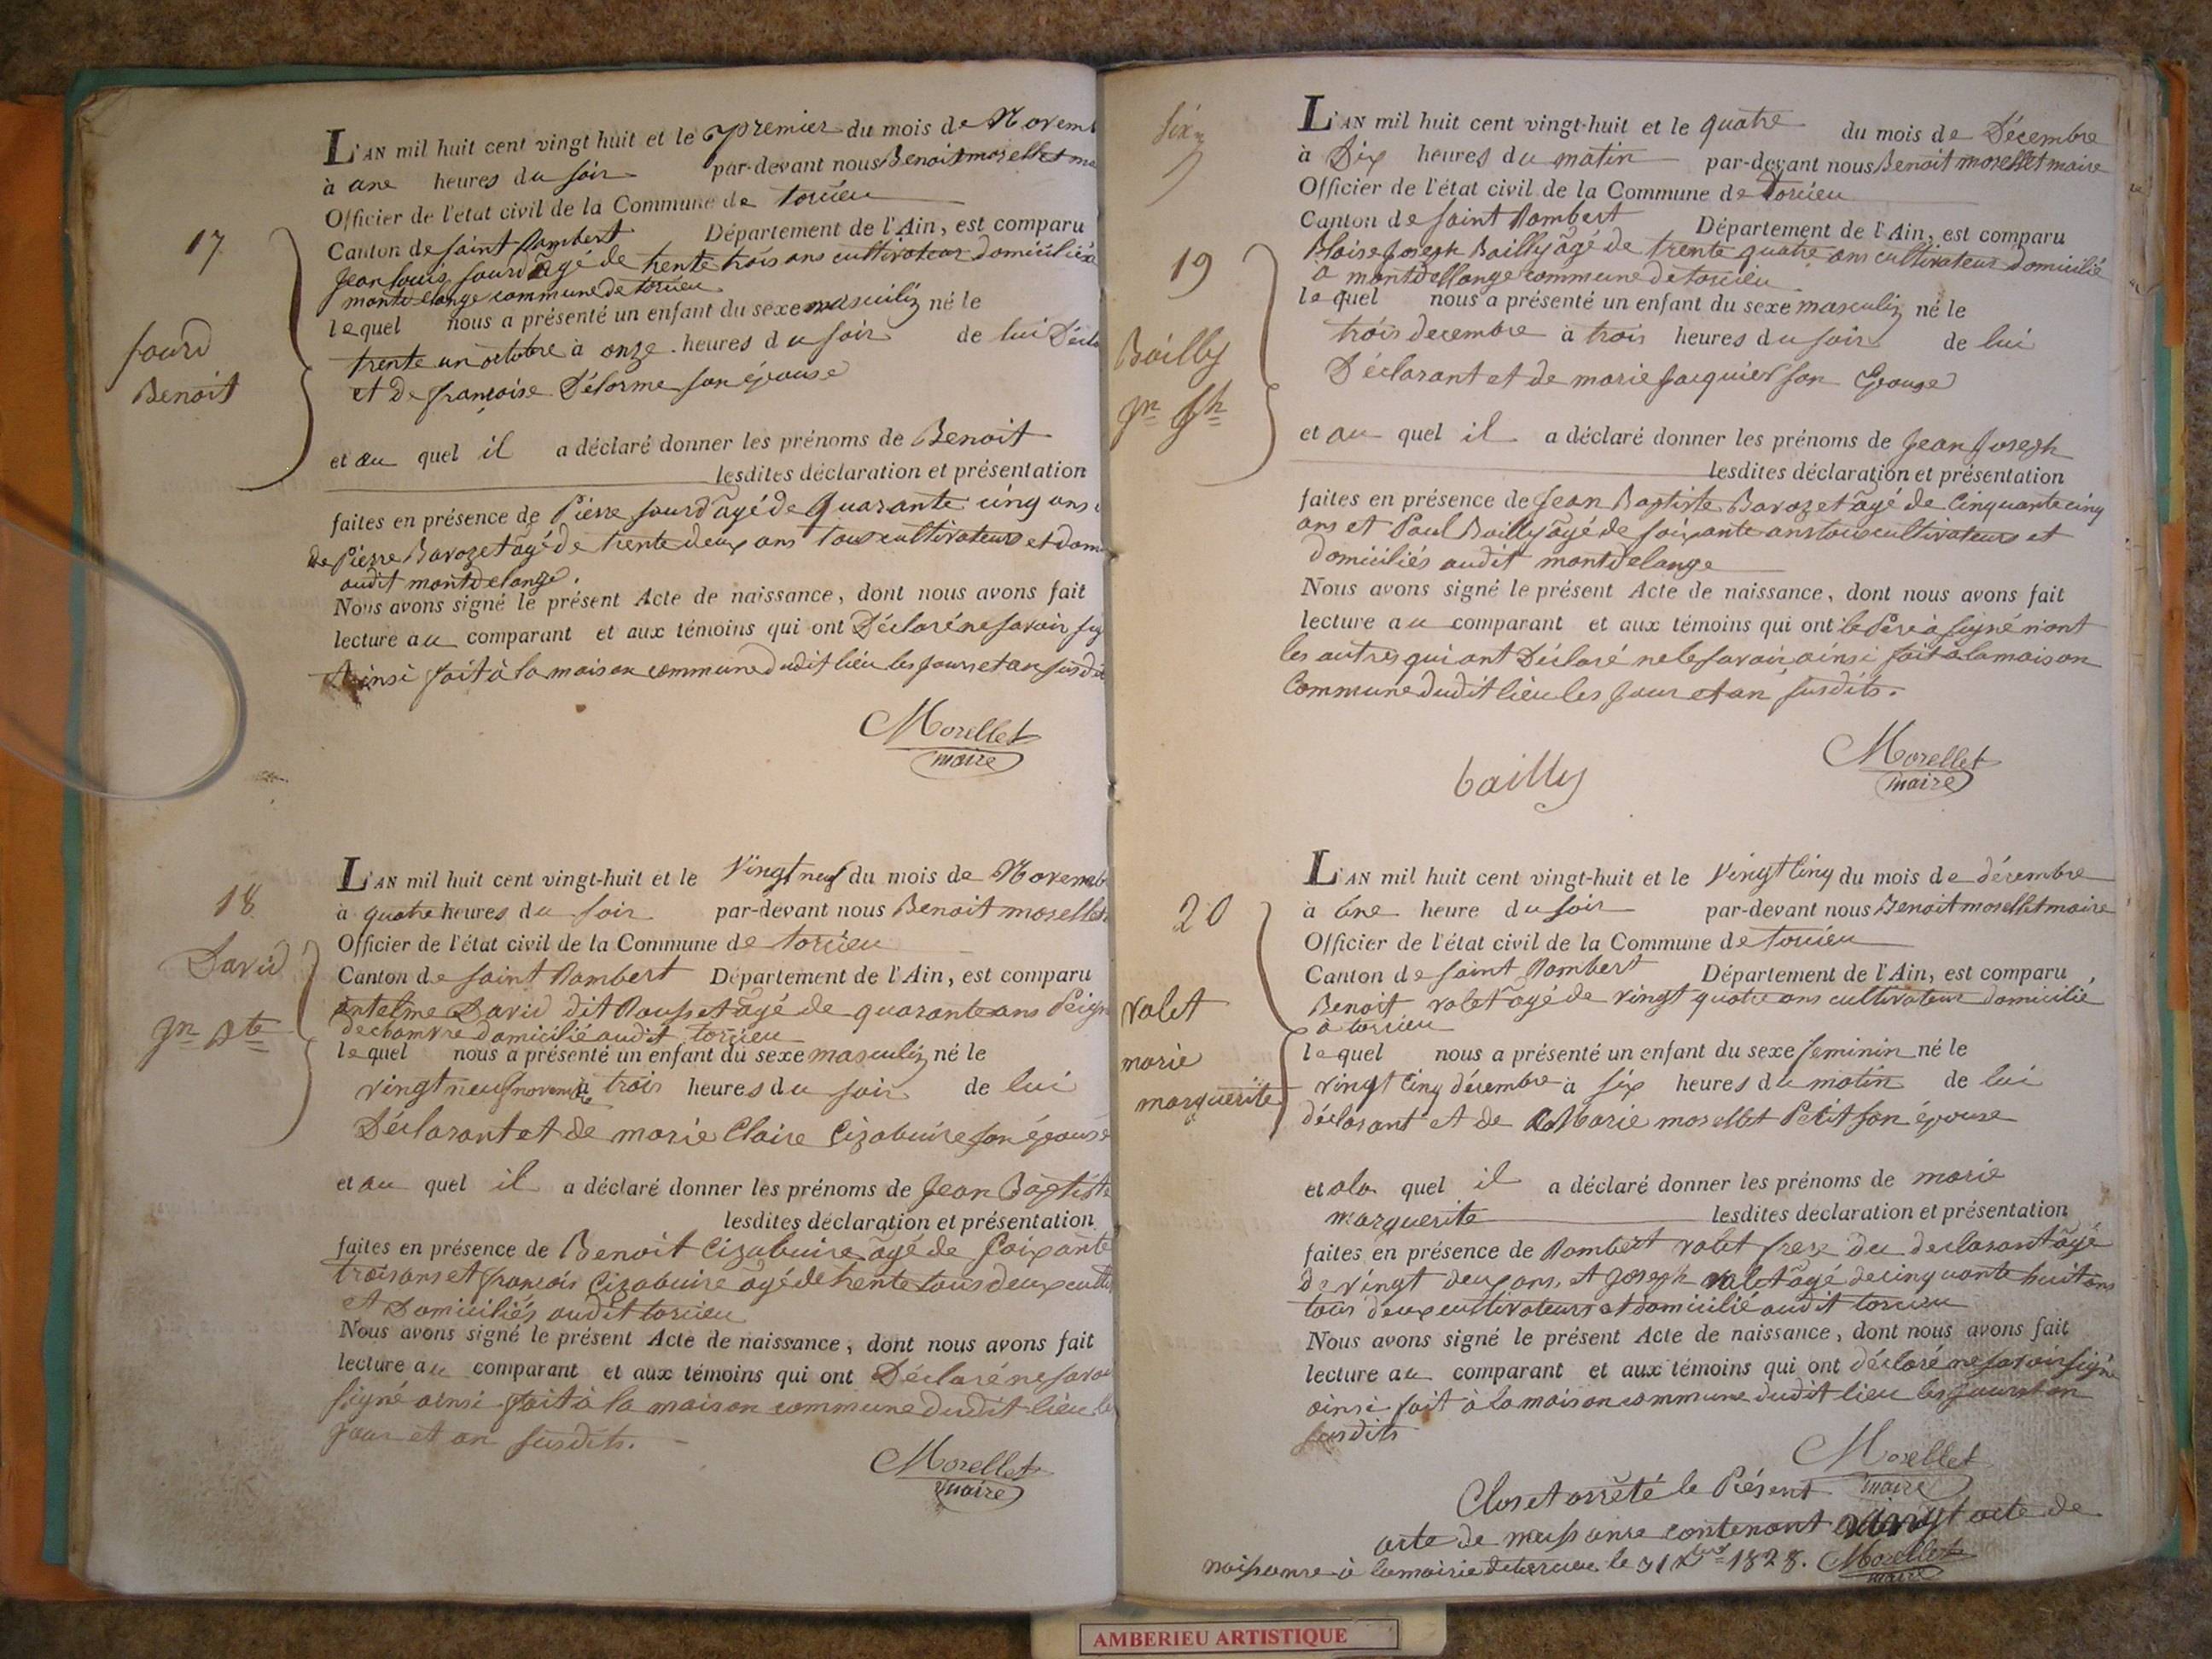 17
Sourd
Benoit
L'AN mil huit cent vingt huit et le premier du mois de Novem
à une heures du soir par-devant nous Benoit morellet ma
Officier de l'état civil de la Commune de torcieu
Canton de saint Rambert Département de l'Ain, est comparu
Jean louis sourd agé de trente trois ans cultivateur domicilié a
montdelange commune de torcieu
lequel nous a présenté un enfant du sexe masculin né le
trente un octobre à onze heures du soir de lui Décla
et De françoise Délorme son épouse
et au quel il a déclaré donner les prénoms de Benoit
lesdites déclaration et présentation
faites en présence de Pierre sourd âgé de Quarante cinq ans
de Pierre Barozet âgé de trente deux ans tous cultivateurs et dom
audit montdelange.
Nous avons signé le présent Acte de naissance, dont nous avons fait
lecture au comparant et aux témoins qui ont Déclaré ne savoir sig
Ainsi fait à la maison commune dudit lieu les jours et an susdit
Morellet
maire
18
David
Jn Bte
L'AN mil huit cent vingt-huit et le Vingt neuf du mois de Novemb
à quatre heures du soir par-devant nous Benoit morellet
Officier de l'état civil de la Commune de torcieu
Canton de saint Rambert Département de l'Ain, est comparu
antelme David dit Rousset âgé de quarante ans Peign
de chamvre domicilié audit torcieu
lequel nous a présenté un enfant du sexe masculin né le
vingt neuf novembre à trois heures du soir de lui
Déclarant et de marie Claire Cizabuire son épouse
et au quel il a déclaré donner les prénoms de Jean Baptiste
lesdites déclaration et présentation
faites en présence de Benoit Cizabuire âgé de soixante
trois ans et francois Cizabuire âgé de trente tous deux culti
et Domiciliés audit torcieu
Nous avons signé le présent Acte de naissance, dont nous avons fait
lecture au comparant et aux témoins qui ont Déclaré ne savoi
signé ainsi fait à la maison commune dudit lieu le
jour et an susdits.
Morellet
maire
six
19
Bailly
Jn Jh
L'AN mil huit cent vingt-huit et le quatre du mois de Décembre
à Dix heures du matin par-devant nous Benoit morellet maire
Officier de l'état civil de la Commune de torcieu
Canton de saint Rambert Département de l'Ain, est comparu
Blaise Joseph Bailly âgé de trente quatre ans cultivateur domicilié
a montdellange commune de torcieu
lequel nous a présenté un enfant du sexe masculin né le
trois decembre à trois heures du soir de lui
Déclarant et de marie Jacquier son Epouse
et au quel il a déclaré donner les prénoms de Jean Joseph
lesdites déclaration et présentation
faites en présence de Jean Baptiste Barozet âgé de Cinquante cinq
ans et Paul Bailly âgé de soixante ans tous cultivateurs et
domiciliés audit montdelange
Nous avons signé le présent Acte de naissance, dont nous avons fait
lecture au comparant et aux témoins qui ont le Père à signé n'ont
les autres qui ont Déclaré ne le savoir ainsi fait à la maison
Commune dudit lieu les jour et an susdits.
bailly
Morellet
maire
20
valet
marie
marguerite
L'AN mil huit cent vingt-huit et le Vingt Cinq du mois de décembre
à une heure du soir par-devant nous Benoit morellet maire
Officier de l'état civil de la Commune de torcieu
Canton de saint Rambert Département de l'Ain, est comparu
Benoit valet âgé de vingt quatre ans cultivateur domicilié
à torcieu
lequel nous a présenté un enfant du sexe feminin né le
vingt Cinq décembre à six heures du matin de lui
déclarant et de Marie morellet Petit son épouse
et ala quel il a déclaré donner les prénoms de marie
marguerite lesdites déclaration et présentation
faites en présence de Rambert valet frere du declarant âgé
de vingt deux ans, et Joseph valet âgé de cinquante huit ans
tous deux cultivateurs et domicilié audit torcieu
Nous avons signé le présent Acte de naissance, dont nous avons fait
lecture au comparant et aux témoins qui ont déclaré ne savoir signé
ainsi fait à la maison commune dudit lieu les jours et an
susdits
Morellet
maire
Clos et arrêté le Présent
acte de naissance contenant vingt acte de
naissance à la mairie de torcieu le 31 Xbre 1828. Morellet
maire
AMBERIEU ARTISTIQUE